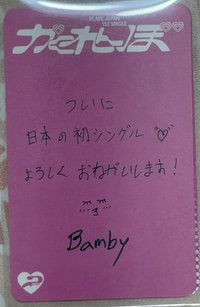 PLAVE JAPAN
1ST SINGLE
かくれんぼ
ついに
日本の初シングル♡
よろしく おねがいします!
Bamby